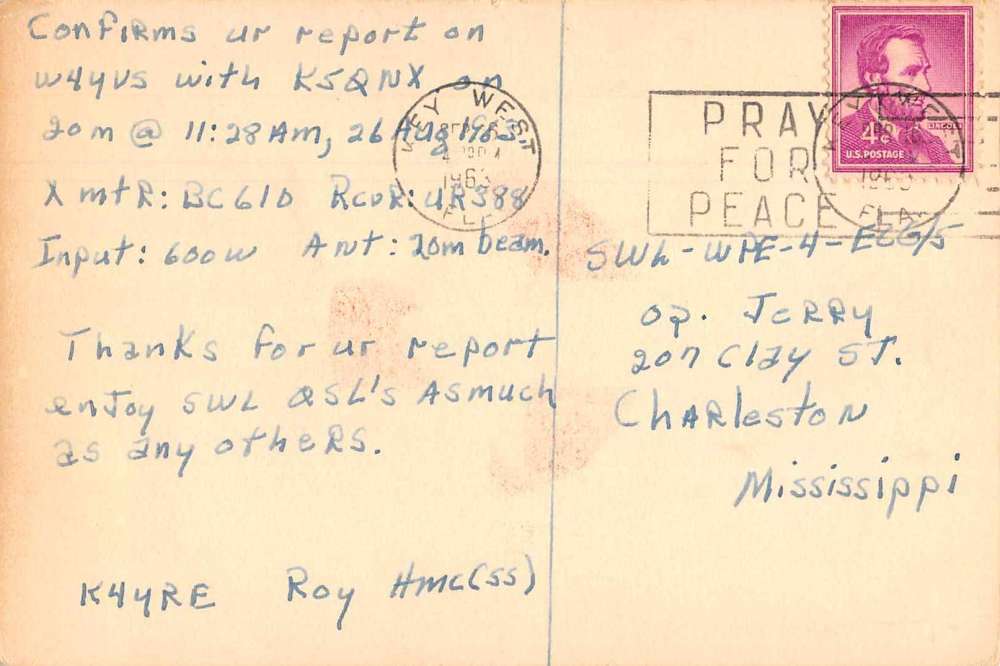 Confirms ur report on
W4YVS with K5QNX on
20m @ 11:28 AM, 26 Aug 1963.
Xmtr: BC610 Rcvr: UR388
Input: 600w Ant: 20m beam.
Thanks for ur report
enjoy SWL QSL's Asmuch
as any others.
K4YRE Roy Hmc(ss)
KEY WEST
1963
FLA
PRAY
FOR
PEACE
KEY WEST
1963
FLA
4¢ LINCOLN
U.S. POSTAGE
SWL-WPE-4-
op. Jerry
207 Clay St.
Charleston
Mississippi